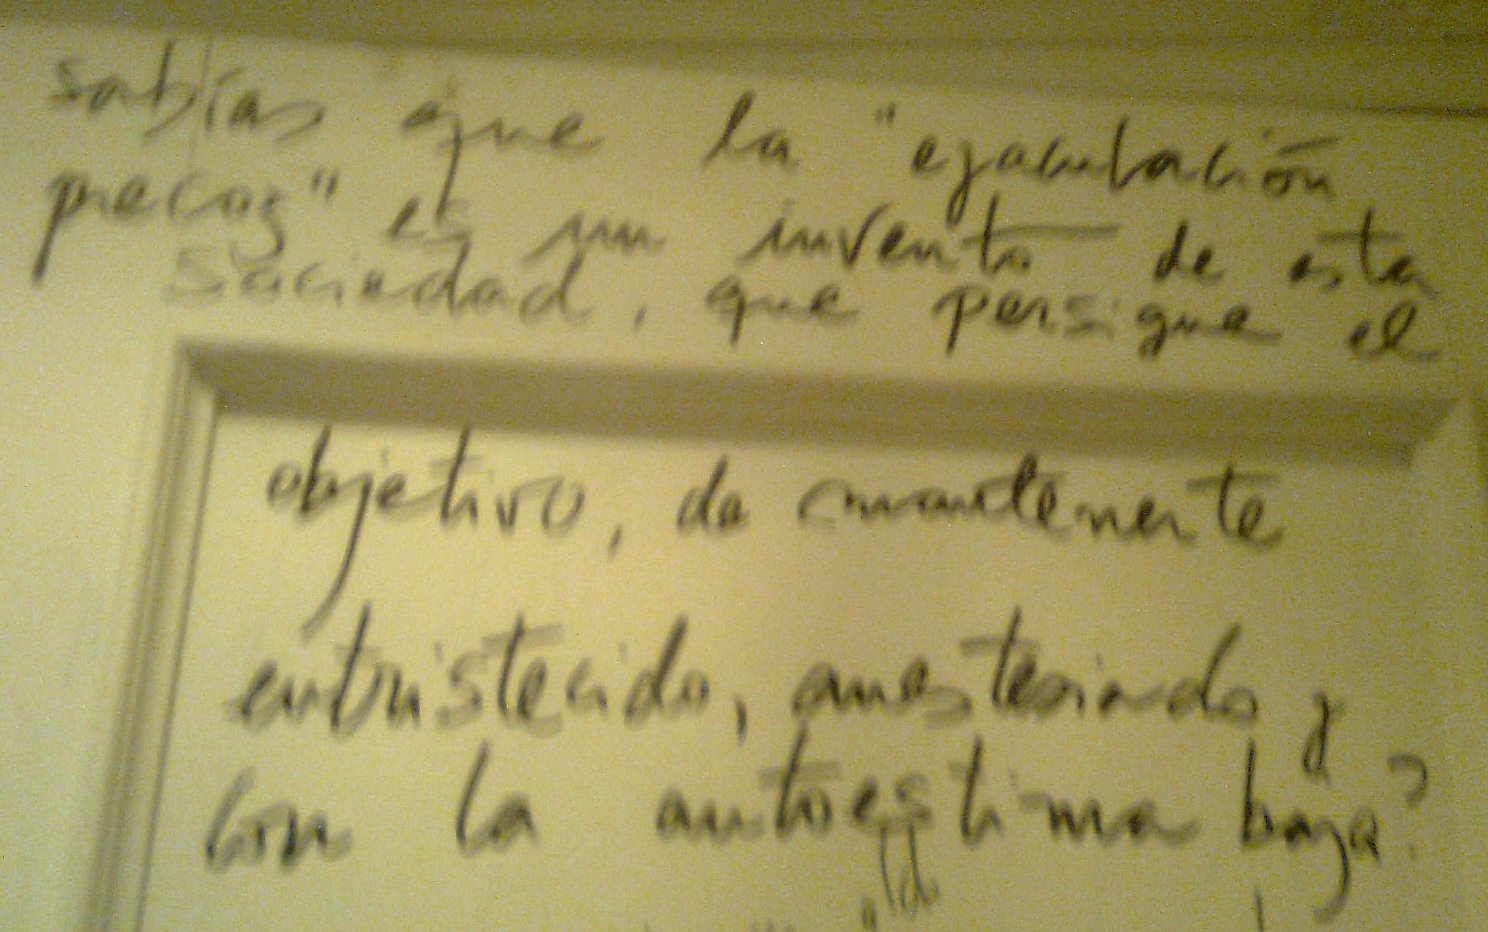 sabías que la "ejaculación
precoz" es un invento de esta
sociedad, que persigue el
objetivo, de mantenerte
entristecido, anestesiado y
con la autoestima baja?